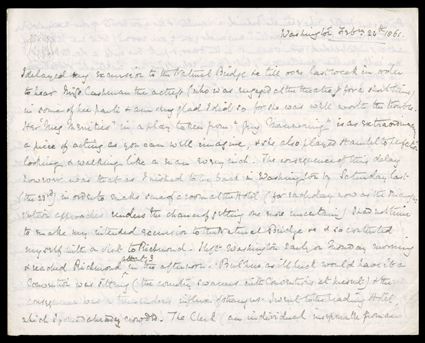 Washington Feby 24th 1861.
I delayed my excursion to the Natural Bridge &c till over last week in order
to hear Miss Cushman the actress (who was engaged at the theatre for a short time,
in some of her parts & am very glad I did so for she was well worth the trouble.
Her "Meg Merrilies" in a play taken from "Guy Mannering" is as extraordinary
a piece of acting as you can well imagine, & she also played Hamlet to perfection
looking & walking like a man every inch. The consequence of this delay
however was that as I wished to be back in Washington by Saturday last
(the 23rd) in order to make sure of a room at the Hotel (for each day now as the
approaches renders the chance of getting one more uncertain) I had not time
to make my intended excursion to the Natural Bridge &c & so contented
myself with a visit to Richmond. I left Washington early on Monday morning
& reached Richmond about 3 in the afternoon. But here as ill luck would have it a
Convention was sitting (the country swarms with Conventions at present) & the
consequence was a tremendous influx of strangers. I went to the leading Hotel,
which I found already crowded. The Clerk (an individual inseparable from an